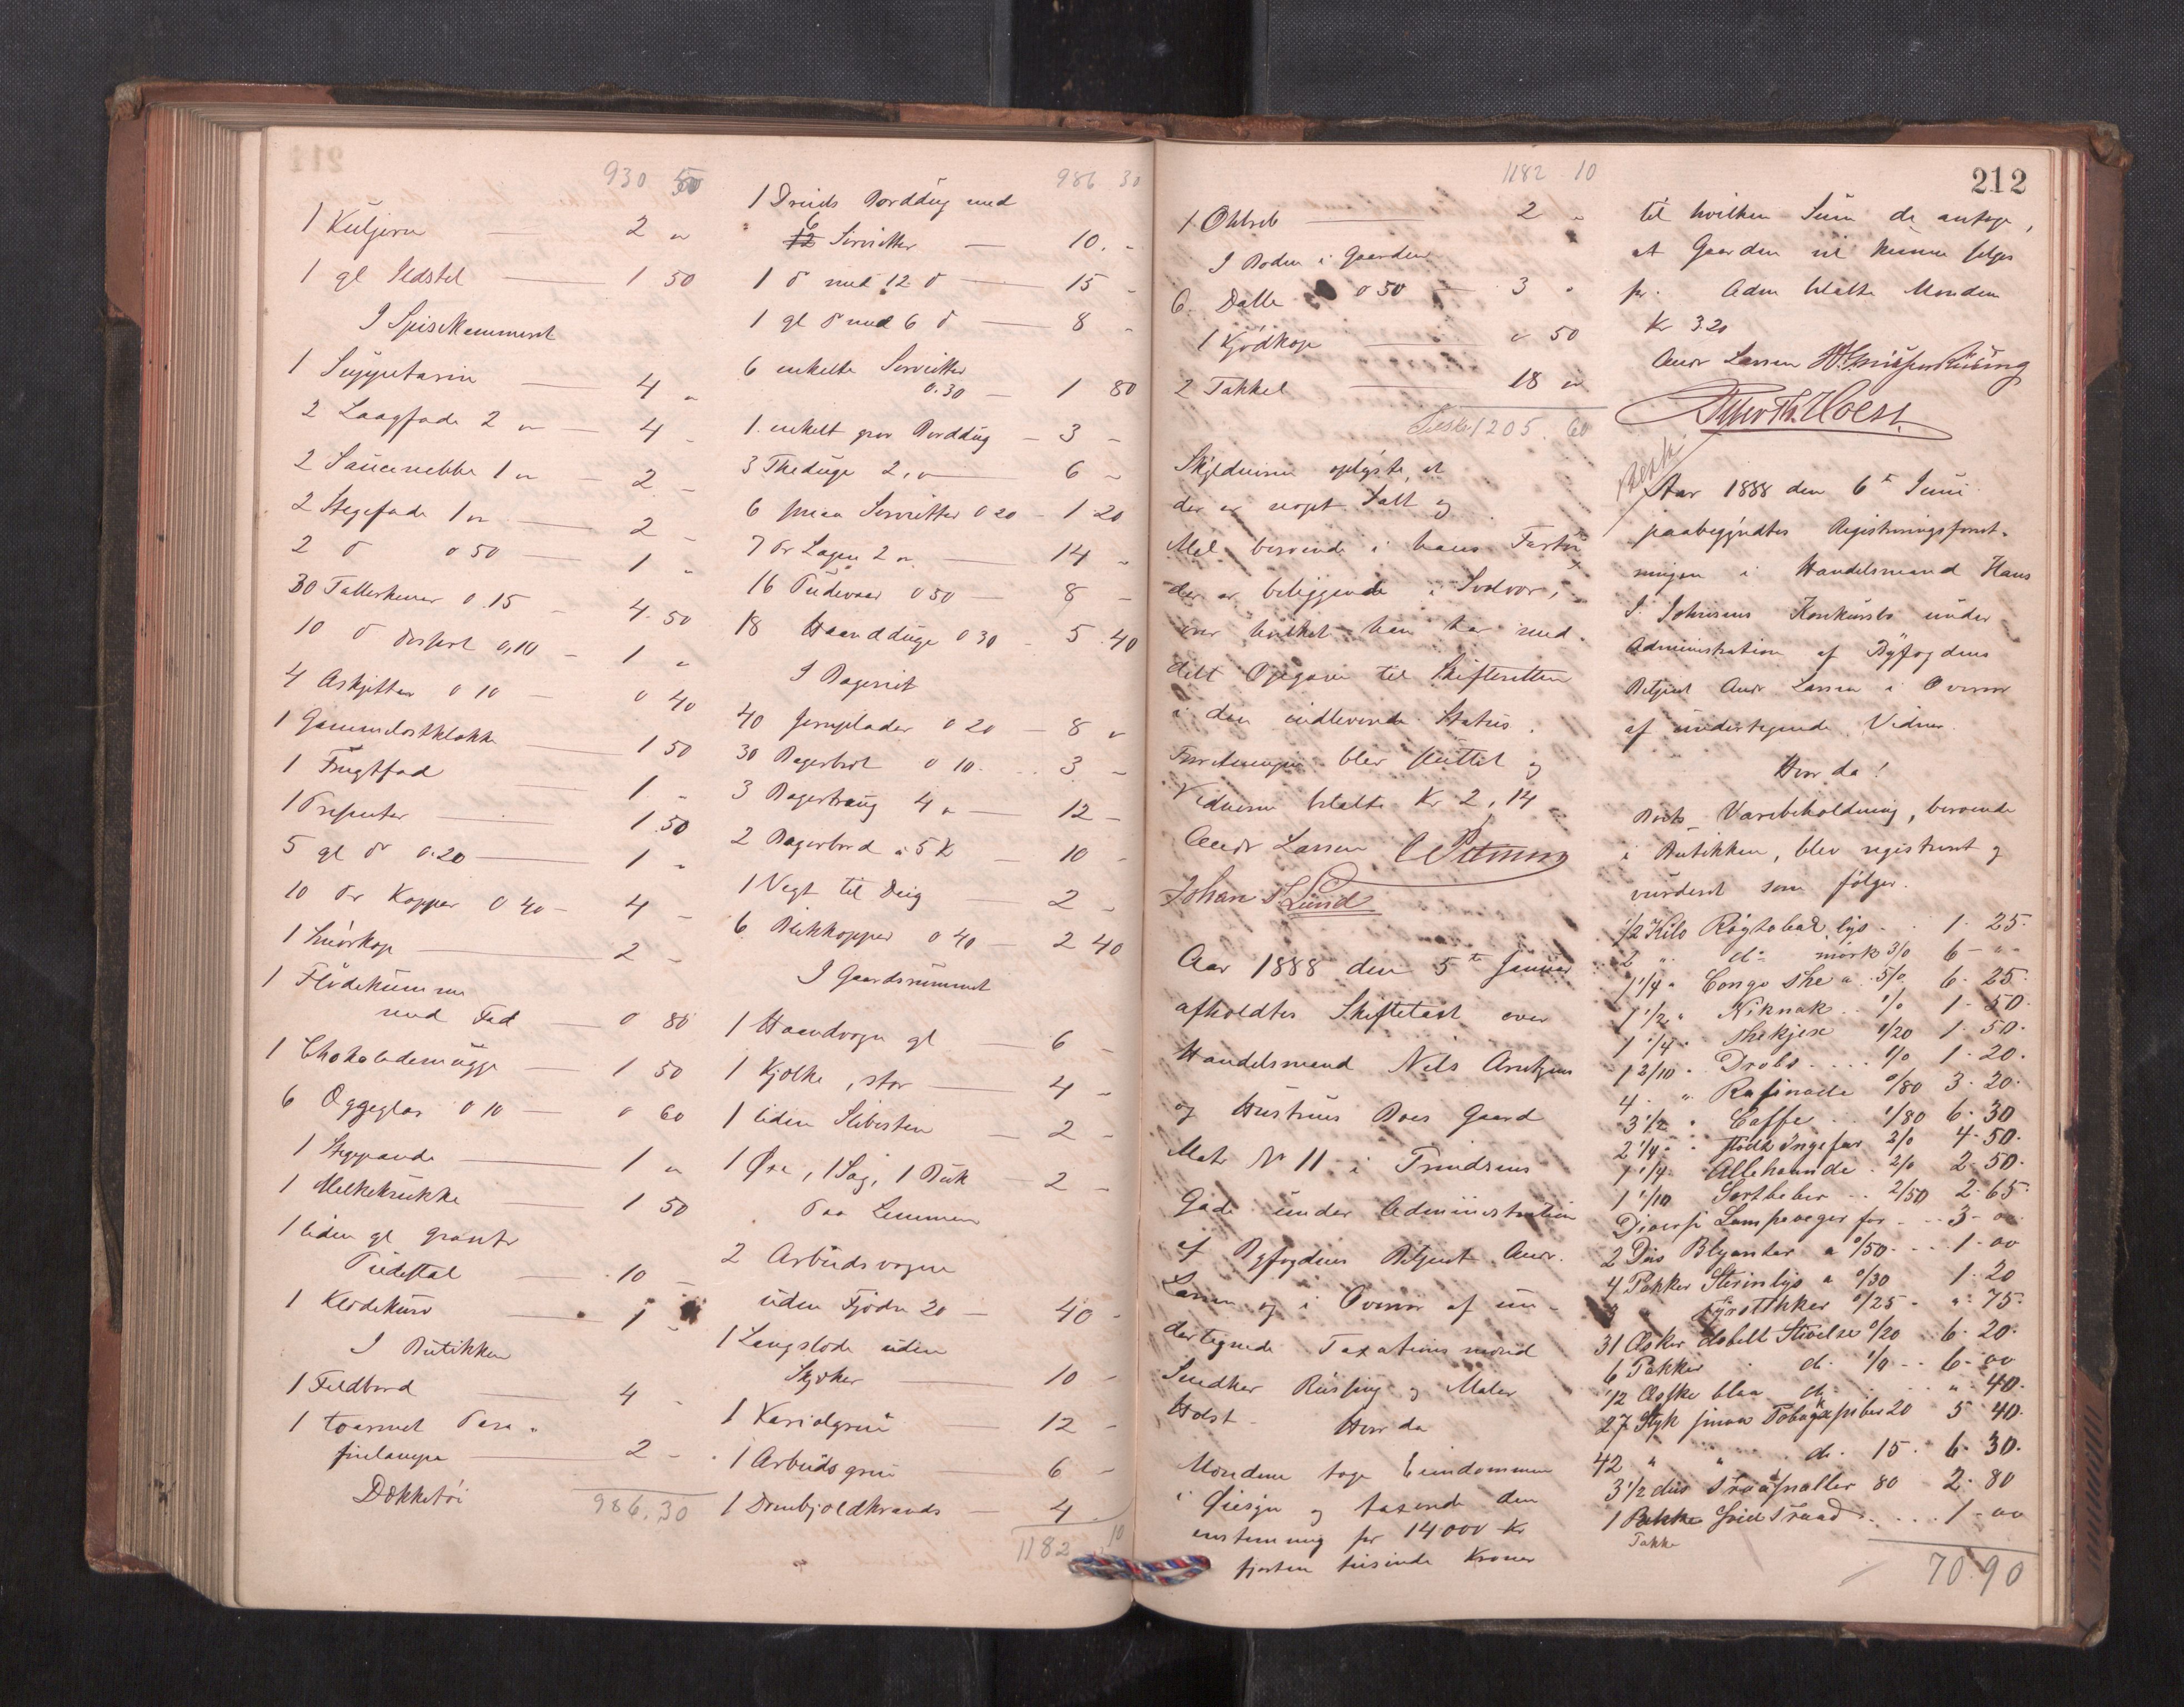 930 50
1 Kuljern 2 "
1 gl Ildstel 1 50
I Spiskammeret
1 Suppetarin 4 "
2 Laagfade 2 " 4 -
2 Saucenebbe 1 " 2 -
2 Stegefade 1 " 2 -
2 d 0 50 1 "
30 Tallerkener 0.15 4.50
10 d desert 0,10 1 "
4 Askjetter 0 10 0 40
1 Gammelostklokke 1 50
1 Frugtfad 1 -
1 Presenter 1.50
5 gl d 0.20 1 -
10 Par Kopper 0 40 4 -
1 Smörkop 2 -
1 Flödekumme
med Fad 0 80
1 Chokolademugge 1 50
6 Æggeglas 0 10 0 60
1 Stegpande 1 "
1 Melkekrukke 1 50
1 liden gl
Piedestal 10 -
1 Klædekurv 1 -
I Butikken
1 Feldbord 4 -
1 toarmet Para-
finlampe 2 -
Dækketöi 986.30
986 30
1 Dreiels Borddug med
6 12 Servietter 10. -
1 d med 12 d 15 -
1 gl d med 6 d 8 -
6 enkelte Servietter
0.30 1 80
1 enkelt grov Borddug 3 -
3 Theduge 2, " 6 -
6 smaa Servietter 0 20 1.20
7 Par Lagen 2 " 14 -
16 Pudevaar 0 50 8 -
18 Haandduge 0 30 5.40
I Bageriet
40 Jernplader 0 20 8 "
30 Bagerbret 0 10 3. -
3 Bagertraug 4 " 12 -
2 Bagerbord a 5 K 10 -
1 Vegt til Deig 2 -
6 Blikkopper 0 40 2 40
I Gaardsrummet
1 Haandvogn gl 6 -
1 Kjælke, stor 4 -
1 liden Slibesten 2 -
1 Øxe, 1 Sag, 1 Buk 2 -
Paa Lemmen
2 Arbeidsvogne
uden Fjædre 20 40 -
1 Langslæde uden
Skjæker 10 -
1 Kariolgreie 12 -
1 Arbeidsgreie 6 -
1 Dombjeldkrands 4
1182 10
1182 10
1 2 "
I Boden i Gaarden
6 Balle 0 50 3 "
1 Kjödkop 0 50
2 Takkel 18 "
1205. 60
Skyldneren oplyste, at
der er noget Salt og
Mel beroende i hans Fartöi
der er beliggende i Svolvær,
over hvilket han har med-
delt Opgave til Skifteretten
i den indleverede Status.
Forretningen blev sluttet og
Vidnerne betalte Kr 2,14
Andr Larsen
Johan S Lund
Aar 1888 den 5te Januar
afholdtes Skiftetaxt over
Handelsmand Nils Arntzens
og Hustrues Boes Gaard
Matr No 11 i
Gade under Administration
af Byfogdens Betjent Andr.
Larsen og i Overvær af un-
dertegnede Taxationsmænd
Snedker Riising og Maler
Holst
Hvor da
Mændene toge Eiendommen
i Øiesyn og taxerede den
enstemmig for 14000 Kr
fjorten tusinde Kroner
212
til hvilken Sum de antage,
at Gaarden vil kunne selges
for. Aden betalte Mændene
Kr 3.20
Andr Larsen
Aar 1888 den 6te Juni
paabegyndtes Registreringsforret-
ningen i Handelsmand Hans
J. Johnsens Konkursbo under
Administration af Byfogdens
Betjent Andr Larsen i Overvær
af undertegnede Vidner.
Hvor da!
Boets Varebeholdning, beroende
i Butikken, blev registreret og
vurderet som følger.
1/2 Kilo Røgtobak lys 1. 25.
2 " do mørk 3/0 6 - "
1 1/4 " Congo The a 5/0 6. 25.
1 1/2 " Niknak 1/0 1. 50.
1 1/4 " Thekjæx 1/20 1. 50.
1 2/10 " Drobs 1/0 1. 20.
4 " Rafinade 0/80 3. 20.
3 1/2 " Caffe 1/80 6. 30
2 1/4 " stødt Ingefær 2/0 4. 50.
1 1/4 Allehaande 2/0 2. 50.
1 1/10 Sortbeber 2/50 2. 65.
Diverse Lampevæger for 3 - 00
2 Dus Blyanter a 0/50 1. 00
4 Pakker Sterinlys a 0/30 1. 20
3 " Fyrstikker 0/25 ". 75.
31 Æsker dobelt Stivelse 0/20 6. 20.
6 Pakker do 1/0 6. 00
1/2 Æske blaa do ". 40.
27 Styk smaa Tobakspiber 20 5 40.
42 " " do 15 6. 30.
3 1/2 dus 80 2. 80
1 Pakke Traad 1 - 00
Pakke
70.90